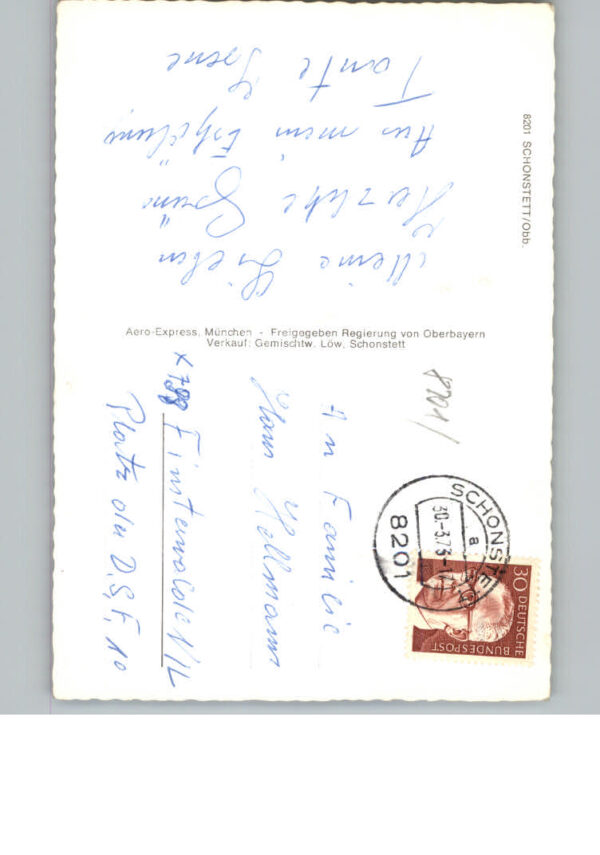 8201 SCHONSTETT/Obb.
Meine Lieben
Herzliche Grüße
Aus mein Erhölung
Tante Irene
Aero-Express, München - Freigegeben Regierung von Oberbayern
Verkauf: Gemischtw. Löw, Schonstett
8201
SCHONSTETT
30.-3.73-17
a
8201
30 DEUTSCHE
BUNDESPOST
An Familie
Hans Hellmann
X 798 Finsterwalde N/L
Platz der D.S.F. 10